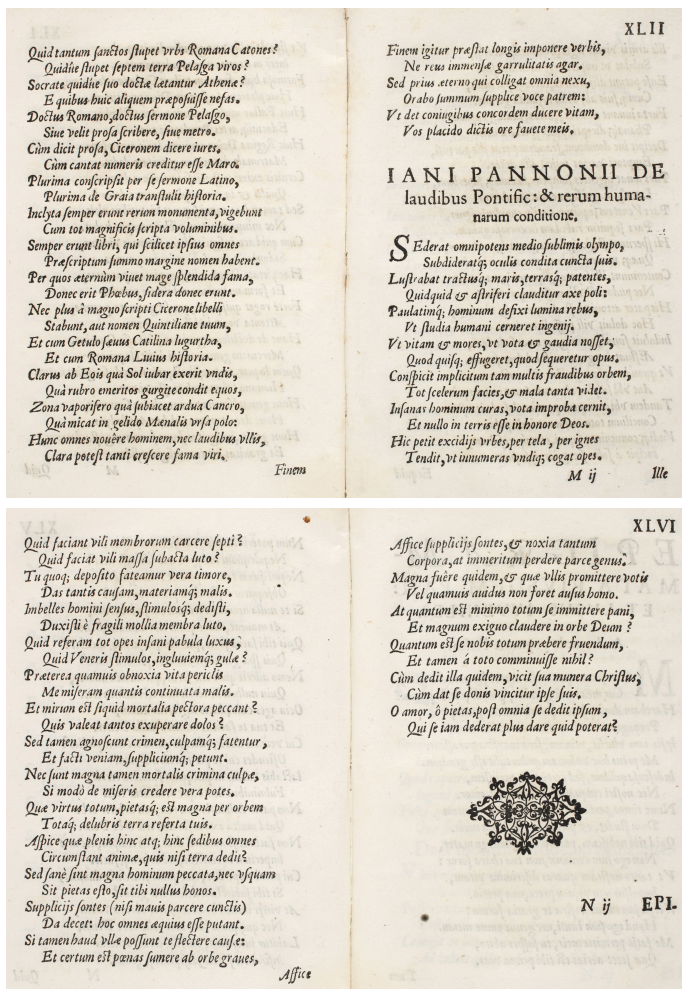 Quid tantum sanctos stupet vrbs Romana Catones?
Quidûe stupet septem terra Pelasga viros?
Socrate quidûe suo doctæ lætantur Athenæ?
E quibus huic aliquem præposuisse nefas.
Doctus Romano, doctus sermone Pelasgo,
Siue velit prosa scribere, siue metro.
Cùm dicit prosa, Ciceronem dicere iures,
Cùm cantat numeris creditur esse Maro.
Plurima conscripsit per se sermone Latino,
Plurima de Graia transtulit historia.
Inclyta semper erunt rerum monumenta, vigebunt
Cum tot magnificis scripta voluminibus.
Semper erunt libri, qui scilicet ipsius omnes
Præscriptum summo margine nomen habent.
Per quos æternùm viuet mage splendida fama,
Donec erit Phœbus, sidera donec erunt.
Nec plus à magno scripti Cicerone libelli
Stabunt, aut nomen Quintiliane tuum,
Et cum Getulo sæuus Catilina Iugurtha,
Et cum Romana Liuius historia.
Clarus ab Eois quà Sol iubar exerit vndis,
Quà rubro emeritos gurgite condit equos,
Zona vaporifero quà subiacet ardua Cancro,
Quà micat in gelido Mænalis vrsa polo:
Hunc omnes nouêre hominem, nec laudibus vllis,
Clara potest tanti crescere fama viri.
Finem
XLII
Finem igitur præstat longis imponere verbis,
Ne reus immensæ garrulitatis agar.
Sed prius æterno qui colligat omnia nexu,
Orabo summum supplice voce patrem:
Vt det coniugibus concordem ducere vitam,
Vos placido dictis ore fauete meis.
IANI PANNONII DE
laudibus Pontific: & rerum huma-
narum conditione.
SEderat omnipotens medio sublimis olympo,
Subdideratq; oculis condita cuncta suis.
Lustrabat tractusq; maris, terrasq; patentes,
Quidquid & astriferi clauditur axe poli:
Paulatimq; hominum defixi lumina rebus,
Vt studia humani cerneret ingenij.
Vt vitam & mores, vt vota & gaudia nosset,
Quod quisq; effugeret, quod sequeretur opus.
Conspicit implicitum tam multis fraudibus orbem,
Tot scelerum facies, & mala tanta videt.
Insanas hominum curas, vota improba cernit,
Et nullo in terris esse in honore Deos.
Hic petit excidijs vrbes, per tela, per ignes
Tendit, vt innumeras vndiq; cogat opes.
M ij
Ille
Quid faciant vili membrorum carcere septi?
Quid faciat vili massa subacta luto?
Tu quoq; deposito fateamur vera timore,
Das tantis causam, materiamq; malis.
Imbelles homini sensus, stimulosq; dedisti,
Duxisti è fragili mollia membra luto.
Quid referam tot opes insani pabula luxus,
Quid Veneris stimulos, ingluuiemq; gulæ?
Præterea quamuis obnoxia vita periclis
Me miseram quantis continuata malis.
Et mirum est siquid mortalia pectora peccant?
Quis valeat tantos exuperare dolos?
Sed tamen agnoscunt crimen, culpamq; fatentur,
Et facti veniam, suppliciumq; petunt.
Nec sunt magna tamen mortalis crimina culpæ,
Si modò de miseris credere vera potes.
Quæ virtus totum, pietasq; est magna per orbem
Totaq; delubris terra referta tuis.
Aspice quæ plenis hinc atq; hinc sedibus omnes
Circumstant animæ, quis nisi terra dedit?
Sed sanè sint magna hominum peccata, nec vsquam
Sit pietas esto, sit tibi nullus honos.
Supplicijs sontes (nisi mauis parcere cunctis)
Da decet: hoc omnes æquius esse putant.
Si tamen haud vllæ possunt te flectere causæ:
Et certum est pœnas sumere ab orbe graues,
Affice
XLVI
Affice supplicijs sontes, & noxia tantum
Corpora, at immeritum perdere parce genus.
Magna fuêre quidem, & quæ vllis promittere votis
Vel quamuis auidus non foret ausus homo.
At quantum est minimo totum se immittere pani,
Et magnum exiguo claudere in orbe Deum?
Quantum est se nobis totum præbere fruendum,
Et tamen á toto comminuisse nihil?
Cùm dedit illa quidem, vicit sua munera Christus,
Cùm dat se donis vincitur ipse suis.
O amor, ô pietas, post omnia se dedit ipsum,
Qui se iam dederat plus dare quid poterat?
N ij
EPI-